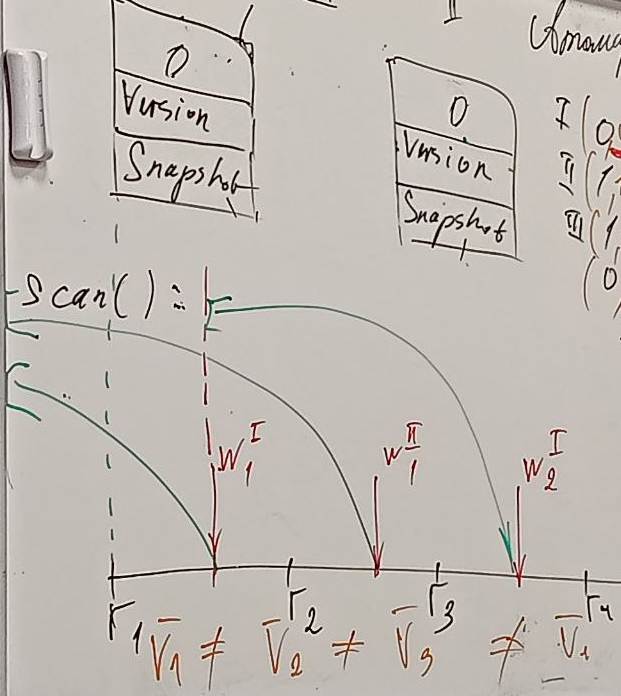 II
0
Version
Snapshot
0
Version
Snapshot
I (0,
II (1,
III (1,
(0
Scan() :
W₁ᴵ
W₁ᴵᴵ
W₂ᴵ
r₁ r₂ r₃ r₄
V̄₁ ≠ V̄₂ ≠ V̄₃ ≠